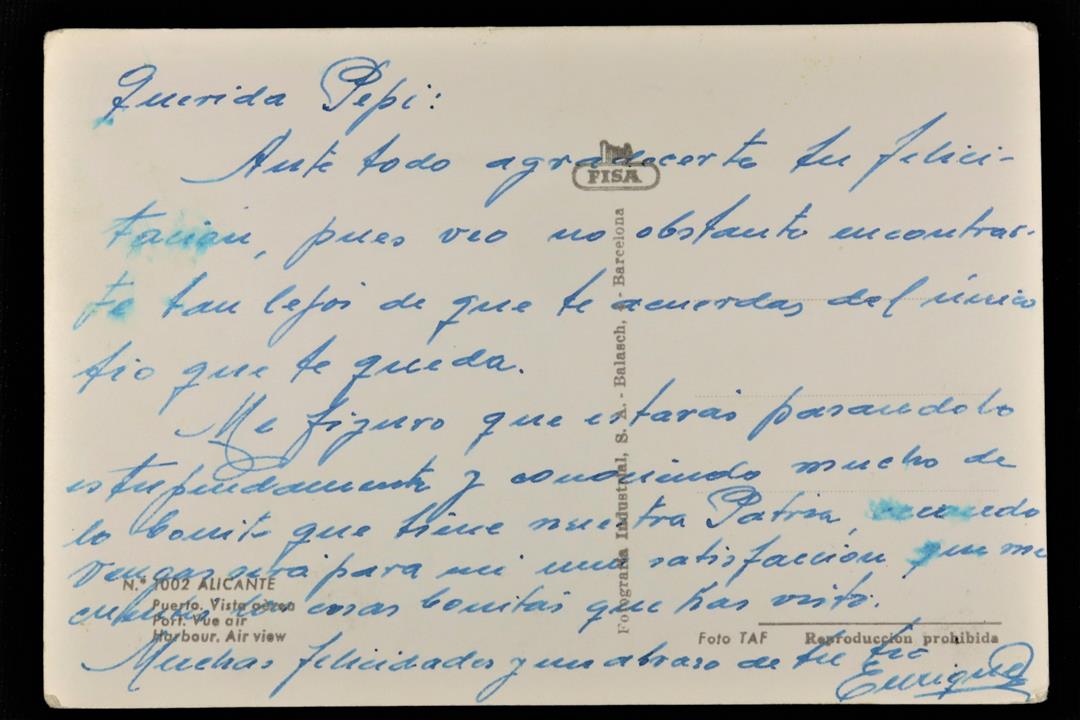 Querida Pepi:
Ante todo agradecerte tu felici-
tación, pues veo no obstante encontrar-
te tan lejos de que te acuerdas del único
tío que te queda.
Me figuro que estarás pasandolo
estupendamente y conociendo mucho de
lo bonito que tiene nuestra Patria, cuando
vengas será para mi una satisfacción que me
cuentas las cosas bonitas que has visto.
Muchas felicidades y un abrazo de tu tío
Enrique
FISA
Fotografia Industrial, S. A. - Balasch, - Barcelona
N.º 1002 ALICANTE
Puerto. Vista aérea
Port. Vue air
Harbour. Air view
Foto TAF Reproducción prohibida